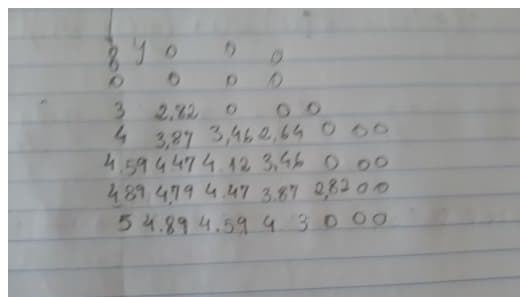 8 y 0 0 0
0 0 0 0
3 2,82 0 0 0
4 3,87 3,46 2,64 0 0 0
4.59 4.47 4.12 3,46 0 0 0
4.89 4,79 4.47 3.87 2,82 0 0
5 4.89 4.59 4 3 0 0 0